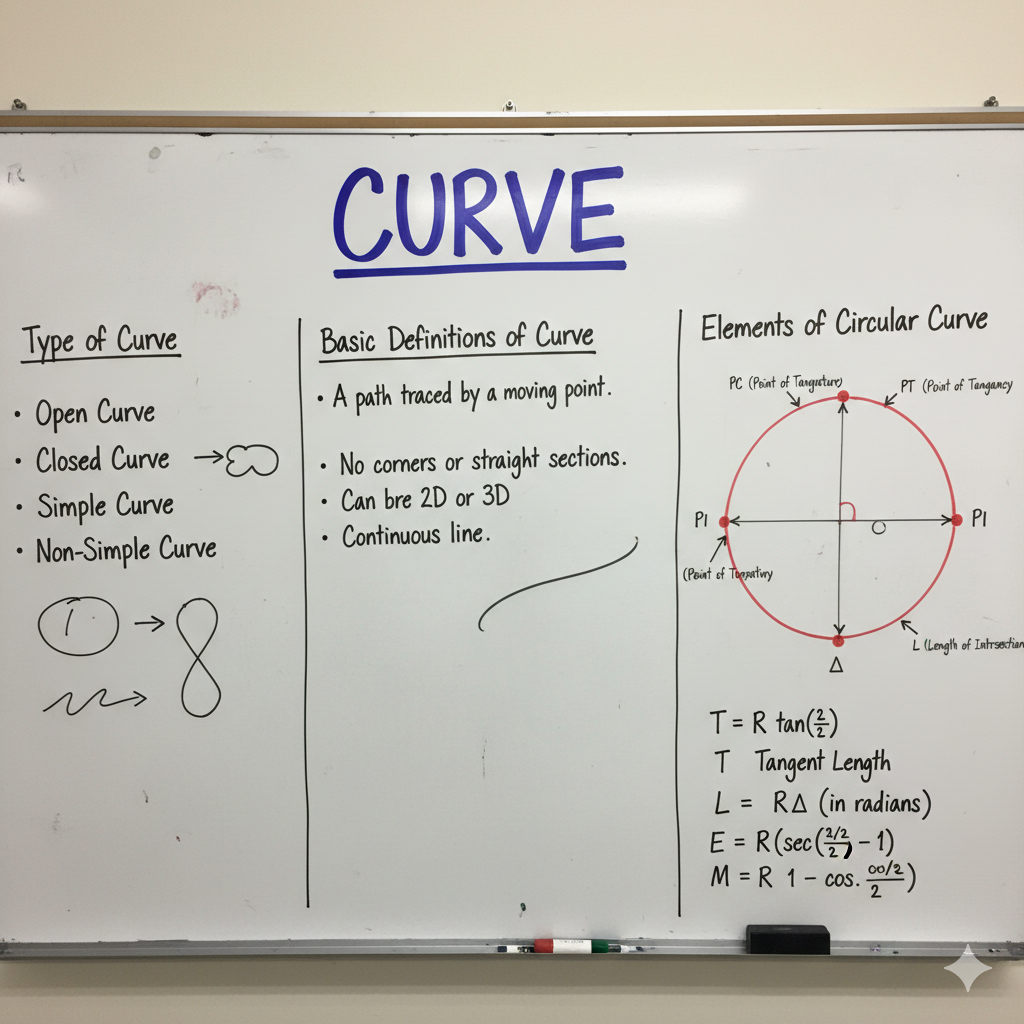 CURVE
Type of Curve
• Open Curve
• Closed Curve →
• Simple Curve
• Non-Simple Curve
Basic Definitions of Curve
• A path traced by a moving point.
• No corners or straight sections.
• Can bre 2D or 3D
• Continuous line.
Elements of Circular Curve
PC (Point of
PT (Point of Tangancy
PI
O
PI
(Point of
L (Length of
Δ
T = R tan(2/2)
T Tangent Length
L = RΔ (in radians)
E = R(sec(2/2/2) - 1)
M = R 1 - cos. oo/2/2)